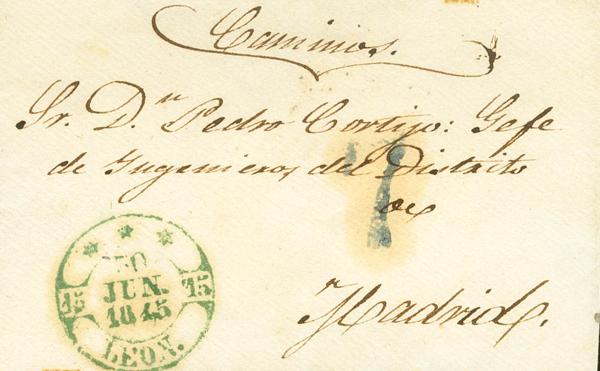 Caminos.
Sr. D.n Pedro Cortijo: Gefe
de Yngenieros del Distrito
de
Madrid.
7
30
JUN.
1845
15 15
LEON.